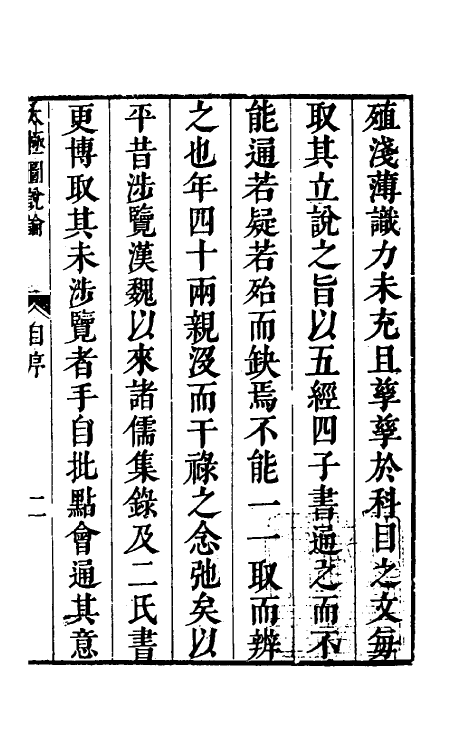 殖淺薄識力未充且孳孳於科目之文每
取其立說之旨以五經四子書通之而不
能通若疑若殆而缺焉不能一一取而辨
之也年四十兩親沒而干祿之念弛矣以
平昔涉覽漢魏以來諸儒集錄及二氏書
更博取其未涉覽者手自批點會通其意
太極圖說論
自序
二